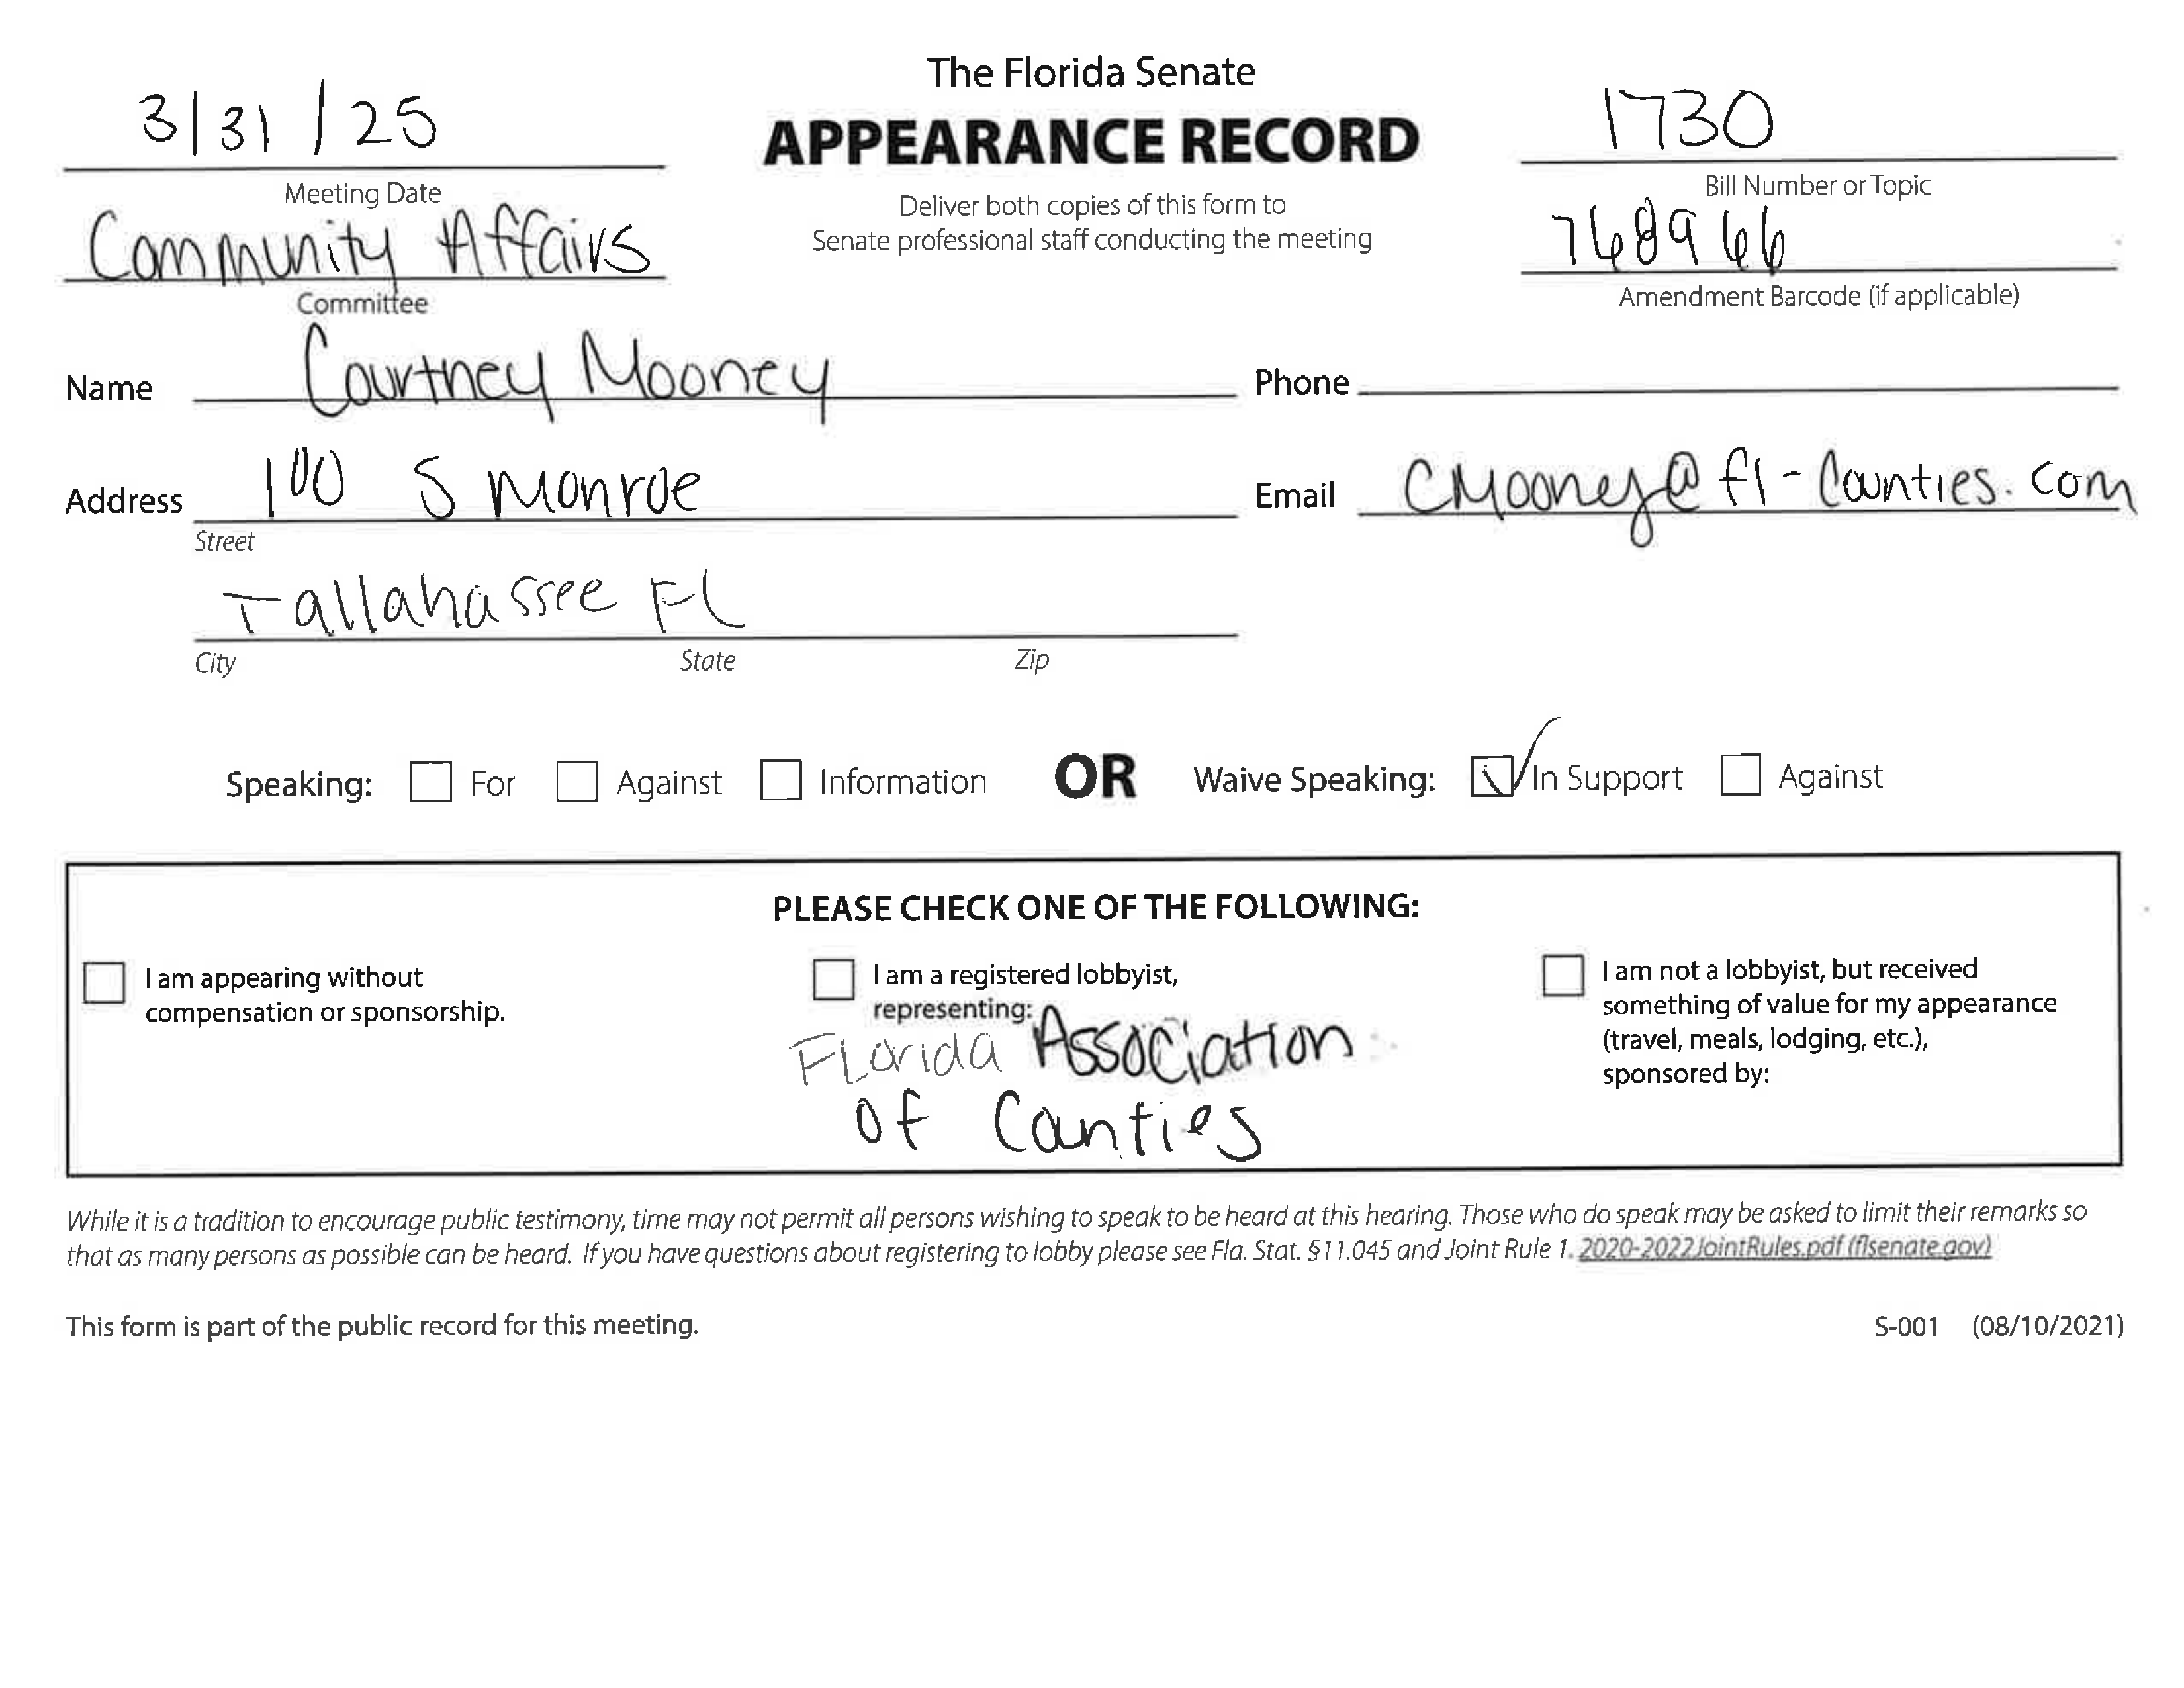 The Florida Senate
APPEARANCE RECORD
Deliver both copies of this form to
Senate professional staff conducting the meeting
3/31/25
Meeting Date
Community Affairs
Committee
1730
Bill Number or Topic
768966
Amendment Barcode (if applicable)
Name Courtney Mooney
Phone
Address 100 S Monroe
Street
Email CMooney@fl-Counties.com
Tallahassee FL
City State Zip
Speaking: For Against Information OR Waive Speaking: In Support Against
PLEASE CHECK ONE OF THE FOLLOWING:
I am appearing without
compensation or sponsorship.
I am a registered lobbyist,
representing:
Florida Association
of Counties
I am not a lobbyist, but received
something of value for my appearance
(travel, meals, lodging, etc.),
sponsored by:
While it is a tradition to encourage public testimony, time may not permit all persons wishing to speak to be heard at this hearing. Those who do speak may be asked to limit their remarks so
that as many persons as possible can be heard. If you have questions about registering to lobby please see Fla. Stat. §11.045 and Joint Rule 1. 2020-2022JointRules.pdf (flsenate.gov)
This form is part of the public record for this meeting.
S-001 (08/10/2021)